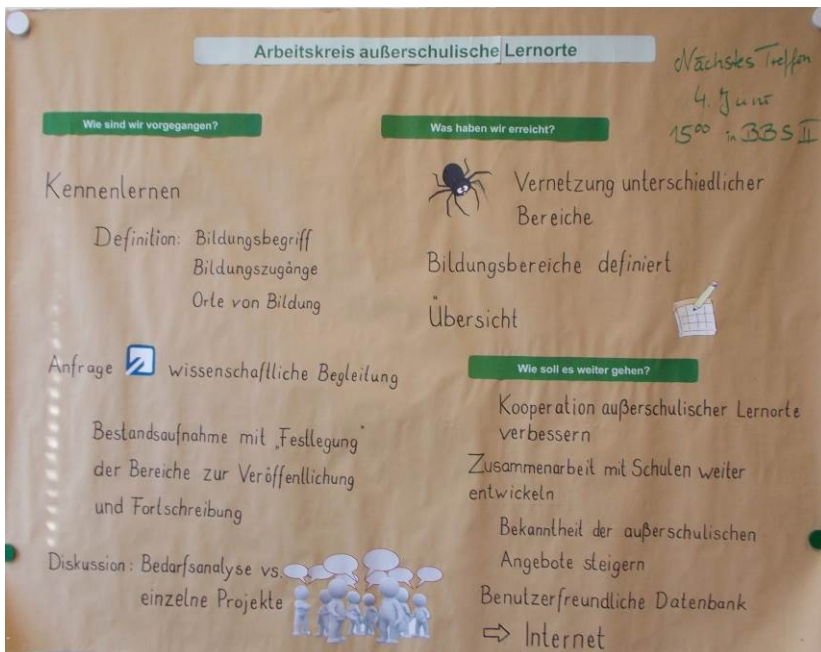 Arbeitskreis außerschulische Lernorte
Nächstes Treffen
4. Juni
15⁰⁰ in BBS II
Wie sind wir vorgegangen?
Kennenlernen
Definition: Bildungsbegriff
Bildungszugänge
Orte von Bildung
Anfrage wissenschaftliche Begleitung
Bestandsaufnahme mit „Festlegung"
der Bereiche zur Veröffentlichung
und Fortschreibung
Diskussion: Bedarfsanalyse vs.
einzelne Projekte
Was haben wir erreicht?
Vernetzung unterschiedlicher
Bereiche
Bildungsbereiche definiert
Übersicht
Wie soll es weiter gehen?
Kooperation außerschulischer Lernorte
verbessern
Zusammenarbeit mit Schulen weiter
entwickeln
Bekanntheit der außerschulischen
Angebote steigern
Benutzerfreundliche Datenbank
⇨ Internet